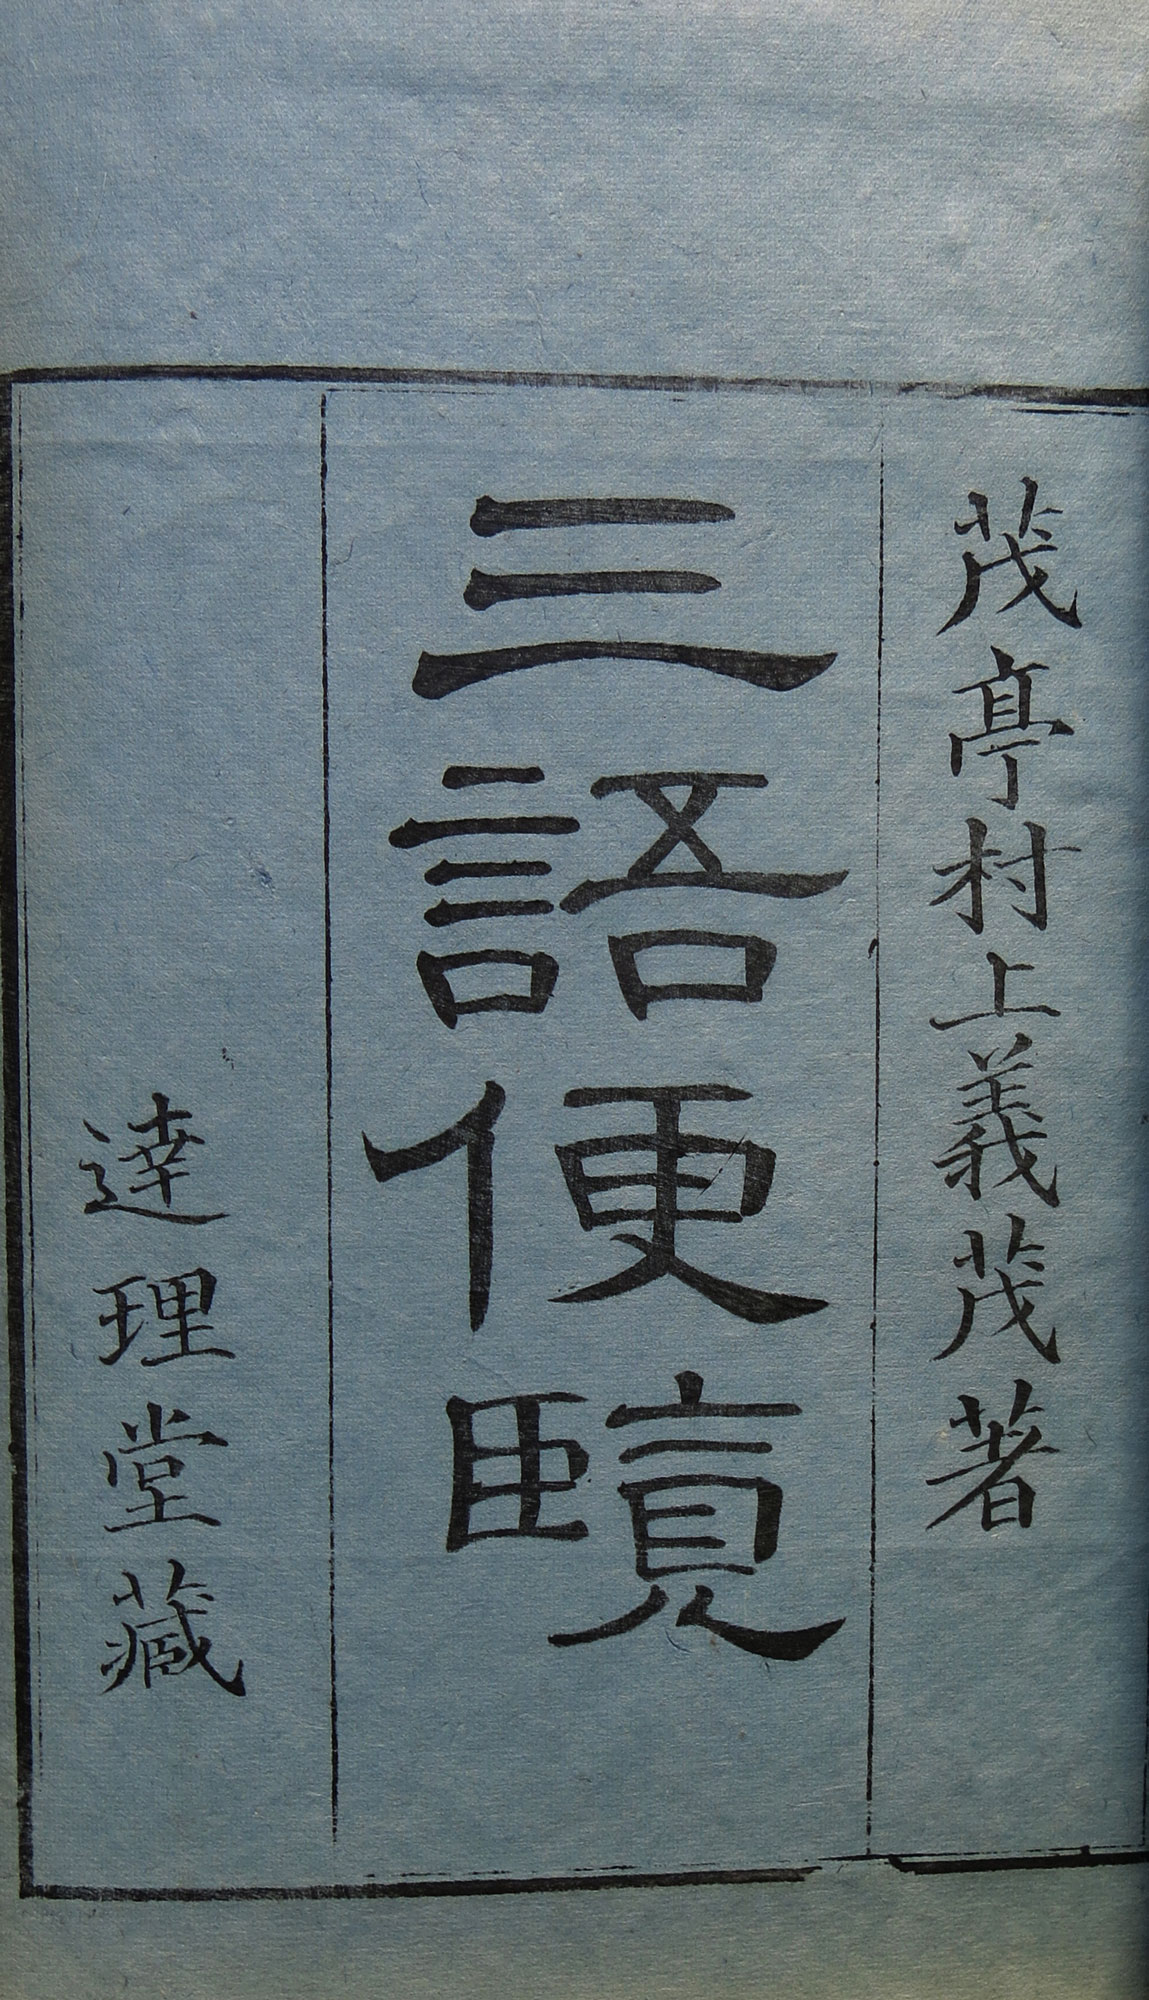 茂亭村上義茂著
三語便覽
達理堂藏